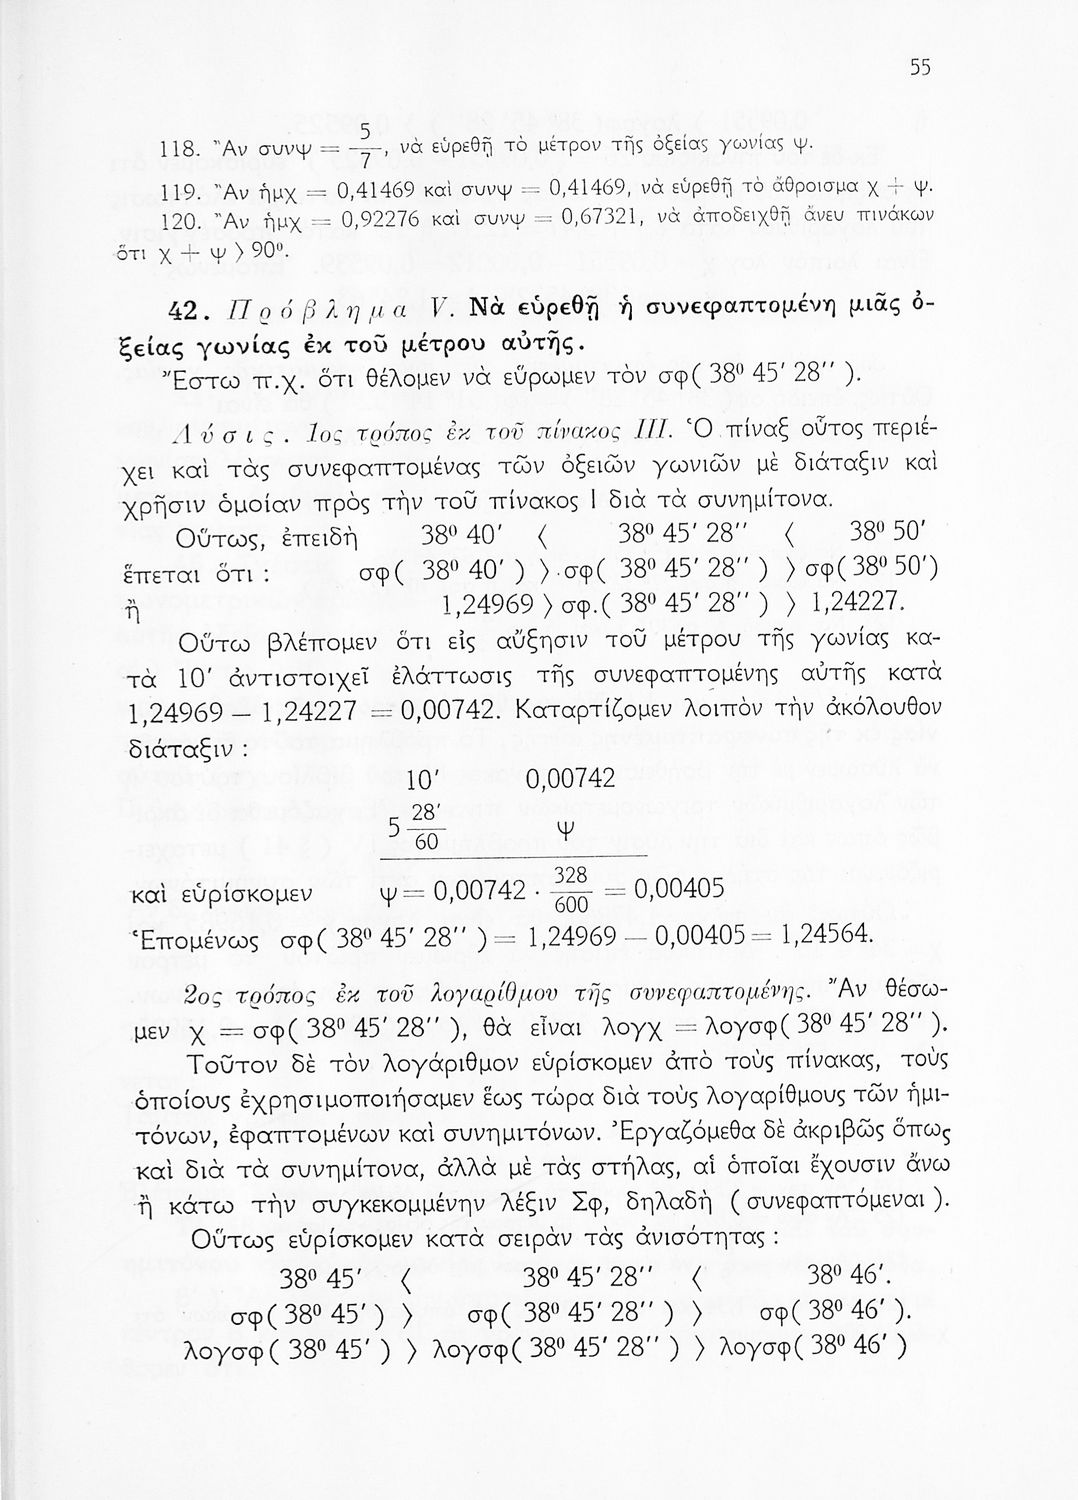 55
118. Ἂν συνψ = 5/7, νὰ εὑρεθῇ τὸ μέτρον τῆς ὀξείας γωνίας ψ.
119. Ἂν ἡμχ = 0,41469 καὶ συνψ = 0,41469, νὰ εὑρεθῇ τὸ ἄθροισμα χ + ψ.
120. Ἂν ἡμχ = 0,92276 καὶ συνψ = 0,67321, νὰ ἀποδειχθῇ ἄνευ πινάκων
ὅτι χ + ψ > 90°.
42. Πρόβλημα V. Νὰ εὑρεθῇ ἡ συνεφαπτομένη μιᾶς ὀ-
ξείας γωνίας ἐκ τοῦ μέτρου αὐτῆς.
Ἔστω π.χ. ὅτι θέλομεν νὰ εὕρωμεν τὸν σφ( 38° 45′ 28″ ).
Λύσις. 1ος τρόπος ἐκ τοῦ πίνακος III. Ὁ πίναξ οὗτος περιέ-
χει καὶ τὰς συνεφαπτομένας τῶν ὀξειῶν γωνιῶν μὲ διάταξιν καὶ
χρῆσιν ὁμοίαν πρὸς τὴν τοῦ πίνακος I διὰ τὰ συνημίτονα.
Οὕτως, ἐπειδὴ 38° 40′ < 38° 45′ 28″ < 38° 50′
ἕπεται ὅτι : σφ( 38° 40′ ) > σφ( 38° 45′ 28″ ) > σφ( 38° 50′)
ἢ 1,24969 > σφ.( 38° 45′ 28″ ) > 1,24227.
Οὕτω βλέπομεν ὅτι εἰς αὔξησιν τοῦ μέτρου τῆς γωνίας κα-
τὰ 10′ ἀντιστοιχεῖ ἐλάττωσις τῆς συνεφαπτομένης αὐτῆς κατὰ
1,24969 – 1,24227 = 0,00742. Καταρτίζομεν λοιπὸν τὴν ἀκόλουθον
διάταξιν :
10′ 0,00742
5 28′/60 ψ
καὶ εὑρίσκομεν ψ = 0,00742 · 328/600 = 0,00405
Ἑπομένως σφ( 38° 45′ 28″ ) = 1,24969 — 0,00405 = 1,24564.
2ος τρόπος ἐκ τοῦ λογαρίθμου τῆς συνεφαπτομένης. Ἂν θέσω-
μεν χ = σφ( 38° 45′ 28″ ), θὰ εἶναι λογχ = λογσφ( 38° 45′ 28″ ).
Τοῦτον δὲ τὸν λογάριθμον εὑρίσκομεν ἀπὸ τοὺς πίνακας, τοὺς
ὁποίους ἐχρησιμοποιήσαμεν ἕως τώρα διὰ τοὺς λογαρίθμους τῶν ἡμι-
τόνων, ἐφαπτομένων καὶ συνημιτόνων. Ἐργαζόμεθα δὲ ἀκριβῶς ὅπως
καὶ διὰ τὰ συνημίτονα, ἀλλὰ μὲ τὰς στήλας, αἱ ὁποῖαι ἔχουσιν ἄνω
ἢ κάτω τὴν συγκεκομμένην λέξιν Σφ, δηλαδὴ ( συνεφαπτόμεναι ).
Οὕτως εὑρίσκομεν κατὰ σειρὰν τὰς ἀνισότητας :
38° 45′ < 38° 45′ 28″ < 38° 46′.
σφ( 38° 45′ ) > σφ( 38° 45′ 28″ ) > σφ( 38° 46′ ).
λογσφ( 38° 45′ ) > λογσφ( 38° 45′ 28″ ) > λογσφ( 38° 46′ )